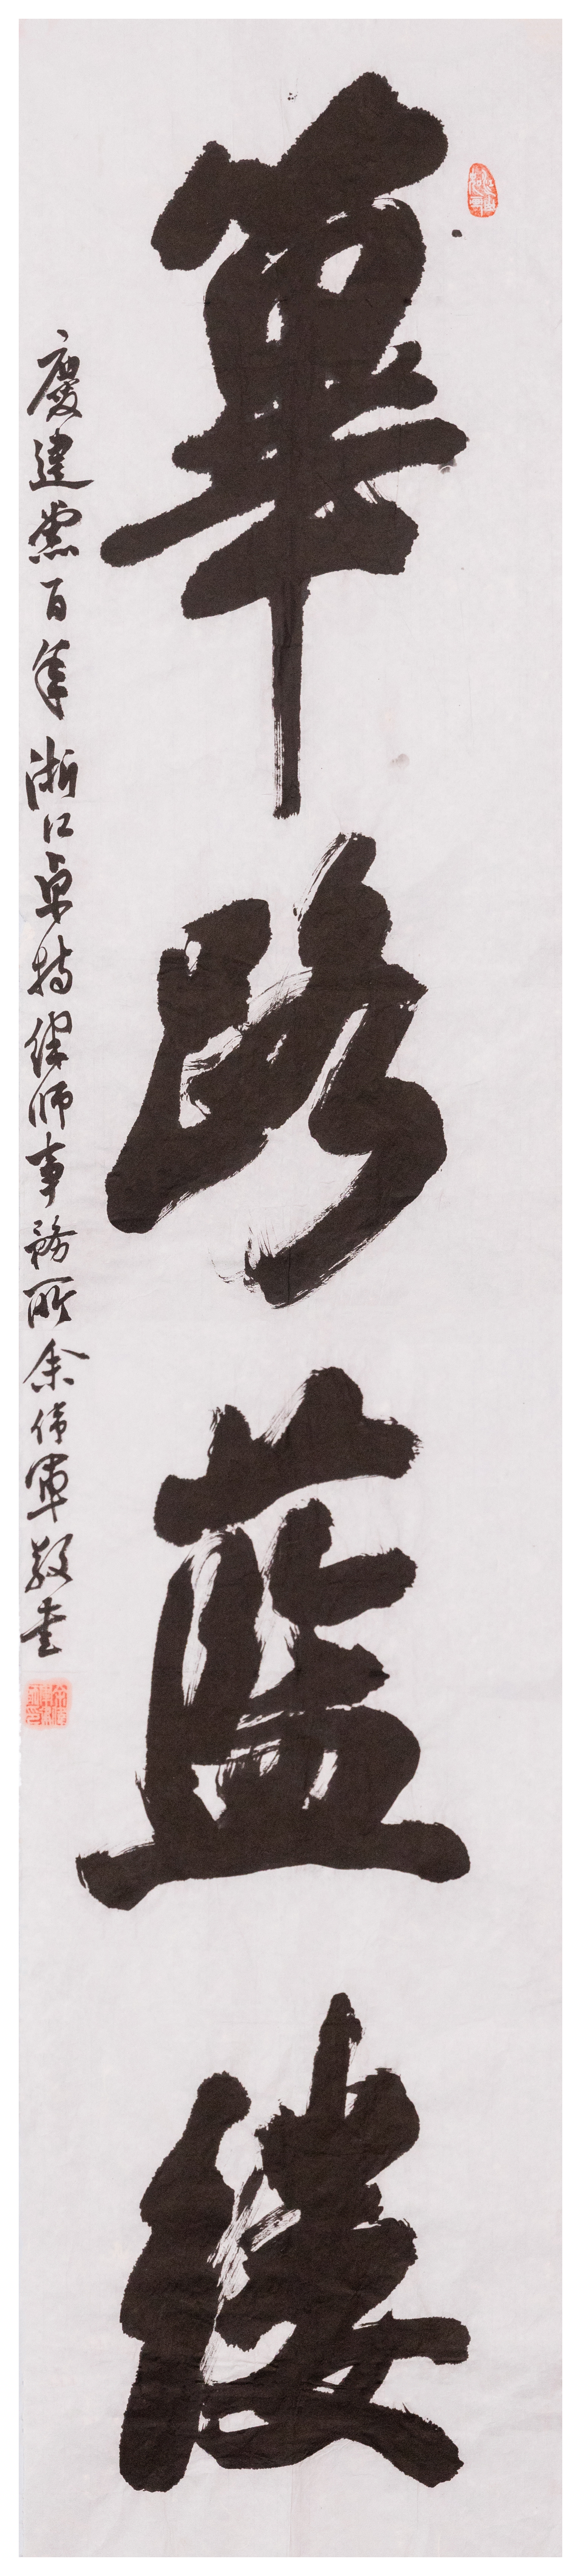 篳路藍縷
慶建黨百年 浙江卓特律師事務所余偉軍敬書